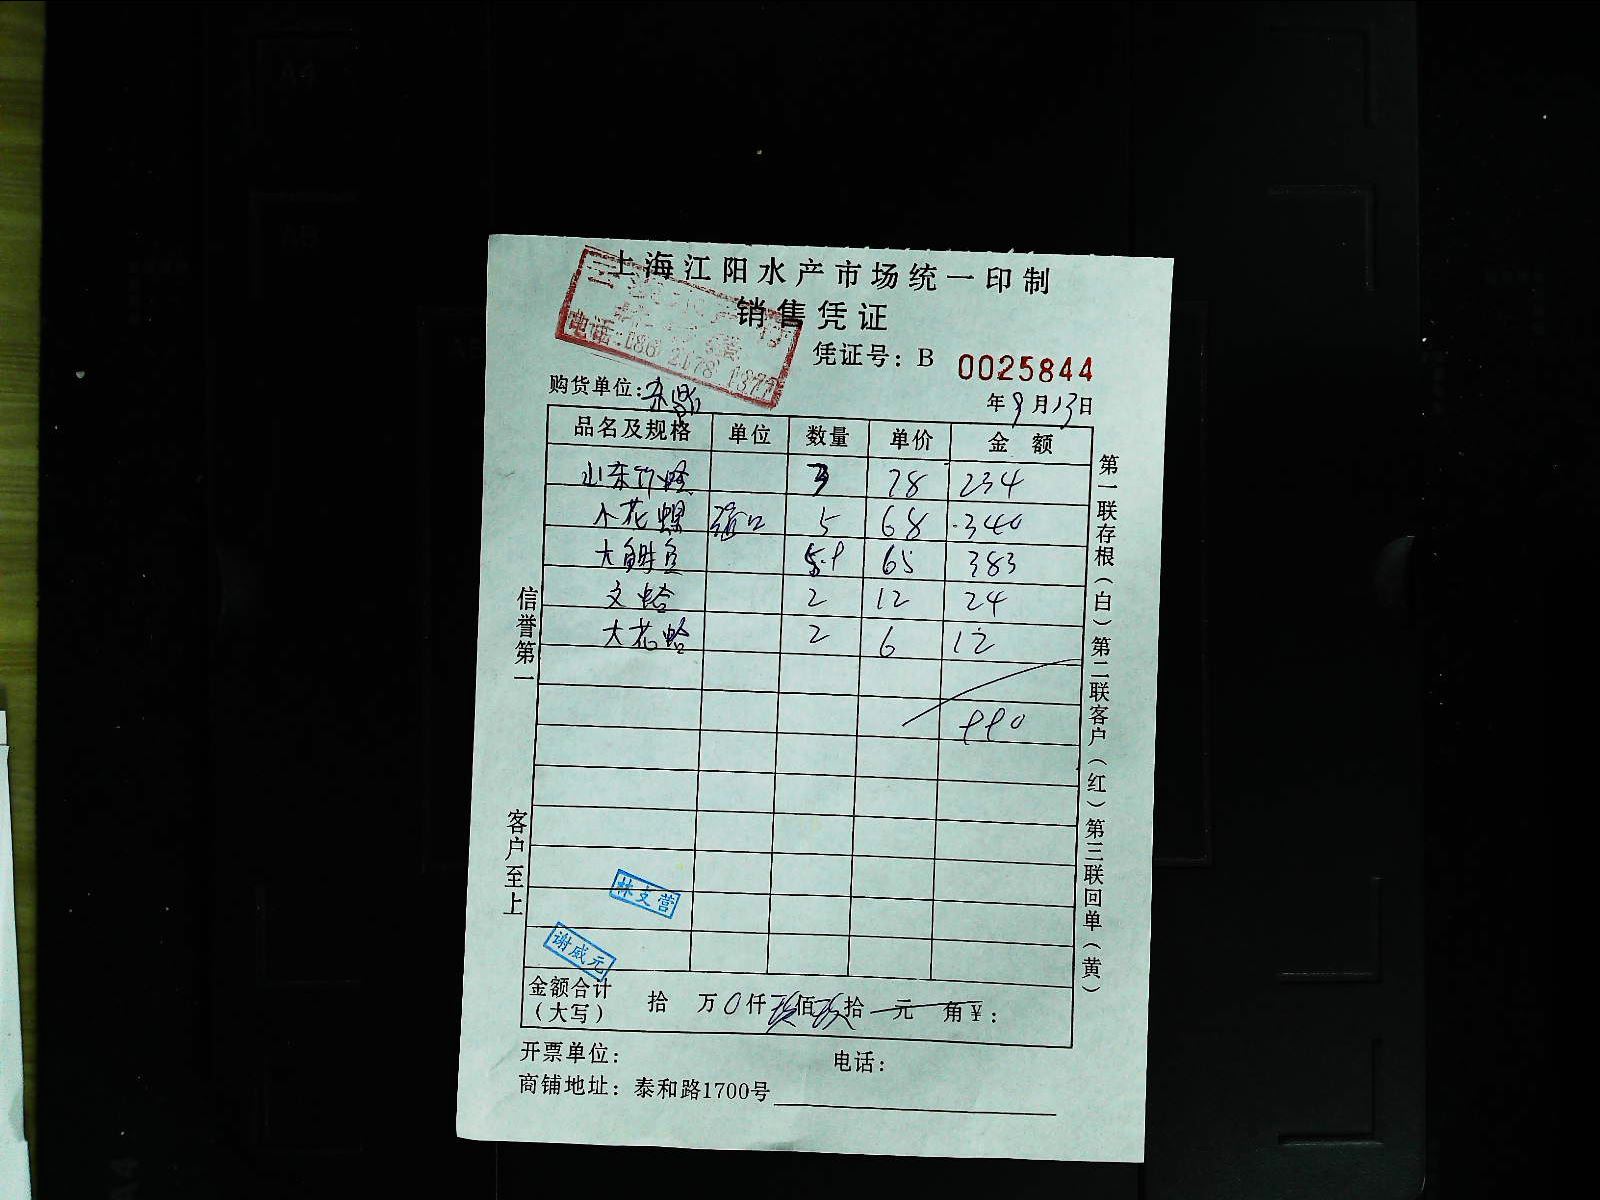 上海江阳水产市场统一印制
销售凭证
电话:186 2178 137
凭证号：B 0025844
购货单位:
年9月13日
品名及规格 单位 数量 单价 金额
山东竹蛏 3 78 234
小花螺 5 68 340
大鲜鱼 5.9 65 383
文蛤 2 12 24
大花蛤 2 6 12
990
林支营
谢威元
金额合计（大写） 拾 万0仟玖佰玖拾 元 角¥：
开票单位： 电话：
商铺地址：泰和路1700号
信誉第一
客户至上
第一联存根（白）第二联客户（红）第三联回单（黄）